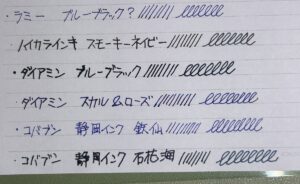 ・ラミー ブルーブラック?
・ハイカラインキ スモーキーネイビー
・ダイアミン ブルーブラック
・ダイアミン スカル&ローズ
・コバブン 静岡インク
・コバブン 静岡インク 石花海